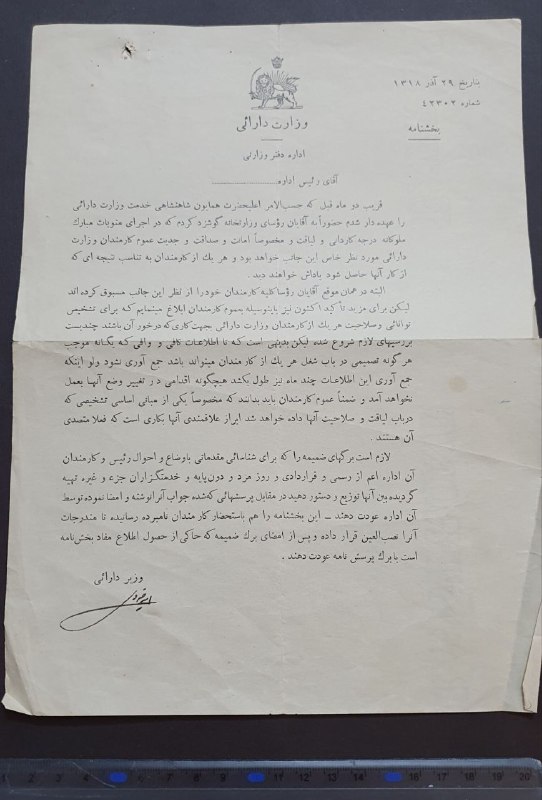 بتاریخ ۲۹ آذر ۱۳۱۸
شماره ۴۲۳۰۲
بخشنامه
وزارت دارائی
اداره دفتر وزارتی
آقای رئیس اداره
قریب دو ماه قبل که حسب‌الامر اعلیحضرت همایون شاهنشاهی خدمت وزارت دارائی
را عهده دار شدم حضوراً به آقایان رؤسای وزارتخانه گوشزد کردم که در اجرای منویات مبارك
ملوکانه درجه کاردانی و لیاقت و مخصوصاً امانت و صداقت و جدیت عموم کارمندان وزارت
دارائی مورد نظر خاص این جانب خواهد بود و هر یك از کارمندان به تناسب نتیجه ای که
از کار آنها حاصل شود پاداش خواهند دید .
البته در همان موقع آقایان رؤسا کلیه کارمندان خود را از نظر این جانب مسبوق کرده اند
لیکن برای مزید تأکید اکنون نیز باینوسیله بعموم کارمندان ابلاغ مینمایم که برای تشخیص
توانائی و صلاحیت هر یك از کارمندان وزارت دارائی بجهت کاری که درخور آن باشند چندیست
بررسیهای لازم شروع شده لیکن بدیهی است که تا اطلاعات کافی و وافی که یگانه موجب
هر گونه تصمیمی در باب شغل هر یك از کارمندان میتواند باشد جمع آوری نشود ولو اینکه
جمع آوری این اطلاعات چند ماه نیز طول بکشد هیچگونه اقدامی در تغییر وضع آنها بعمل
نخواهد آمد و ضمناً عموم کارمندان باید بدانند که مخصوصاً یکی از مبانی اساسی تشخیصی که
درباب لیاقت و صلاحیت آنها داده خواهد شد ابراز علاقمندی آنها بکاری است که فعلا متصدی
آن هستند .
لازم است برگهای ضمیمه را که برای شناسائی مقدماتی باوضاع و احوال رئیس و کارمندان
آن اداره اعم از رسمی و قراردادی و روز مزد و دون‌پایه و خدمتگزاران جزء و غیره تهیه
گردیده بین آنها توزیع و دستور دهید در مقابل پرسشهائی که شده جواب آنرا نوشته و امضا نموده توسط
آن اداره عودت دهند ــ این بخشنامه را هم باستحضار کارمندان نامبرده رسانیده تا مندرجات
آنرا نصب‌العین قرار داده و پس از امضای برك ضمیمه که حاکی از حصول اطلاع مفاد بخش‌نامه
است با برك پرسش نامه عودت دهند .
وزیر دارائی
1 2 3 4 6 7 8 9 11 12 13 14 16 17 18 19 20